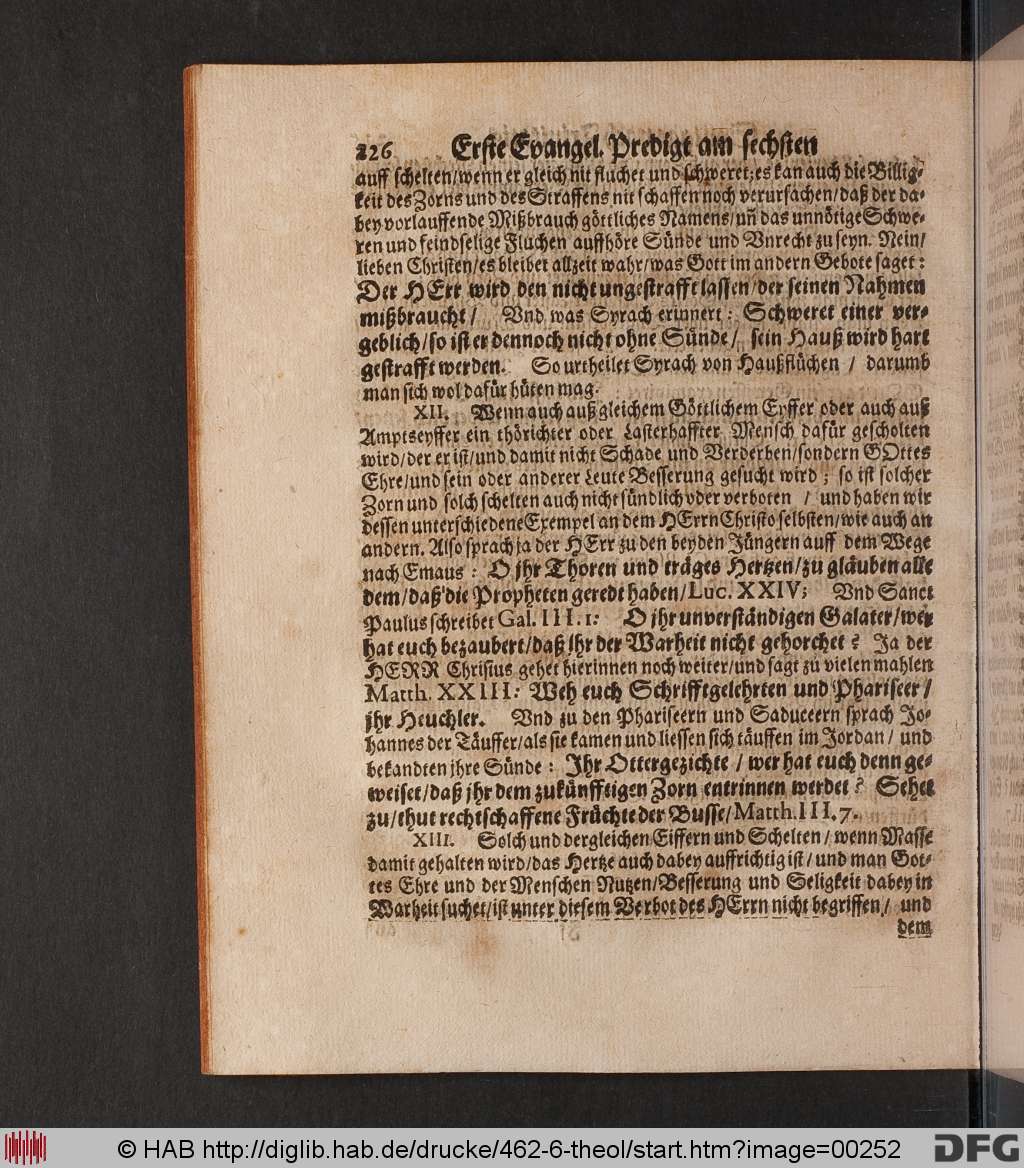 226 Erste Evangel. Predigt am sechsten
auff schelten/wenn er gleich nit fluchet und schweret; es kan auch die Billig-
keit des Zorns und des Straffens nit schaffen noch verursachen/daß der da-
bey vorlauffende Mißbrauch göttliches Namens/uñ das unnötige Schwe-
ren und feindselige Fluchen auffhöre Sünde und Vnrecht zu seyn. Nein/
lieben Christen/es bleibet allzeit wahr/was Gott im andern Gebote saget:
Der HErr wird den nicht ungestrafft lassen/der seinen Nahmen
mißbraucht/ Vnd was Syrach erinnert: Schweret einer ver-
geblich/so ist er dennoch nicht ohne Sünde/ sein Hauß wird hart
gestrafft werden. So urtheilet Syrach von Haußflüchen / darumb
man sich wol dafür hüten mag.
XII. Wenn auch auß gleichem Göttlichem Eyffer oder auch auß
Amptseyffer ein thörichter oder Lasterhaffter Mensch dafür gescholten
wird/der er ist/und damit nicht Schade und Verderben/sondern GOttes
Ehre/und sein oder anderer Leute Besserung gesucht wird; so ist solcher
Zorn und solch schelten auch nicht sündlich oder verboten / und haben wir
dessen unterschiedene Exempel an dem HErrn Christo selbsten/wie auch an
andern. Also sprach ja der HErr zu den beyden Jüngern auff dem Wege
nach Emaus: O jhr Thoren und träges Hertzen/zu gläuben alle
dem/daß die Propheten geredt haben/Luc. XXIV; Vnd Sanct
Paulus schreibet Gal. III. 1: O jhr unverständigen Galater/wer
hat euch bezaubert/daß jhr der Warheit nicht gehorchet? Ja der
HERR Christus gehet hierinnen noch weiter/und sagt zu vielen mahlen
Matth. XXIII: Weh euch Schrifftgelehrten und Phariseer/
jhr Heuchler. Vnd zu den Phariseern und Saduceern sprach Jo-
hannes der Täuffer/als sie kamen und liessen sich täuffen im Jordan/ und
bekandten jhre Sünde: Jhr Ottergezichte / wer hat euch denn ge-
weiset/daß jhr dem zukünfftigen Zorn entrinnen werdet? Sehet
zu/thut rechtschaffene Früchte der Busse/Matth. III. 7.
XIII. Solch und dergleichen Eiffern und Schelten/ wenn Masse
damit gehalten wird/das Hertze auch dabey auffrichtig ist/ und man Got-
tes Ehre und der Menschen Nutzen/Besserung und Seligkeit dabey in
Warheit suchet/ist unter diesem Verbot des HErrn nicht begriffen/ und
dem
© HAB http://diglib.hab.de/drucke/462-6-theol/start.htm?image=00252
DFG